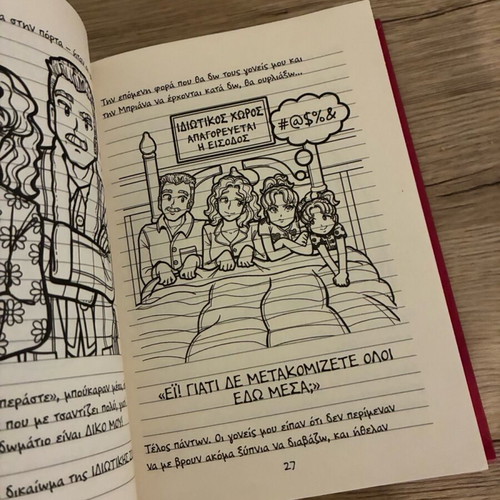 α στην πόρτα –
περάστε», μπούκαραν μέσα
που με τσαντίζει πολύ,
δωμάτιο είναι ΔΙΚΟ ΜΟΥ
δικαίωμα της ΙΔΙΩΤΙΚΗΣ
Την επόμενη φορά που θα δω τους γονείς μου και
την Μπριάνα να έρχονται κατά δω, θα ουρλιάξω...
ΙΔΙΩΤΙΚΟΣ ΧΩΡΟΣ
ΑΠΑΓΟΡΕΥΕΤΑΙ
Η ΕΙΣΟΔΟΣ
#@$%&
«ΕΪ! ΓΙΑΤΙ ΔΕ ΜΕΤΑΚΟΜΙΖΕΤΕ ΟΛΟΙ
ΕΔΩ ΜΕΣΑ;»
Τέλος πάντων. Οι γονείς μου είπαν ότι δεν περίμεναν
να με βρουν ακόμα ξύπνια να διαβάζω, και ήθελαν
27